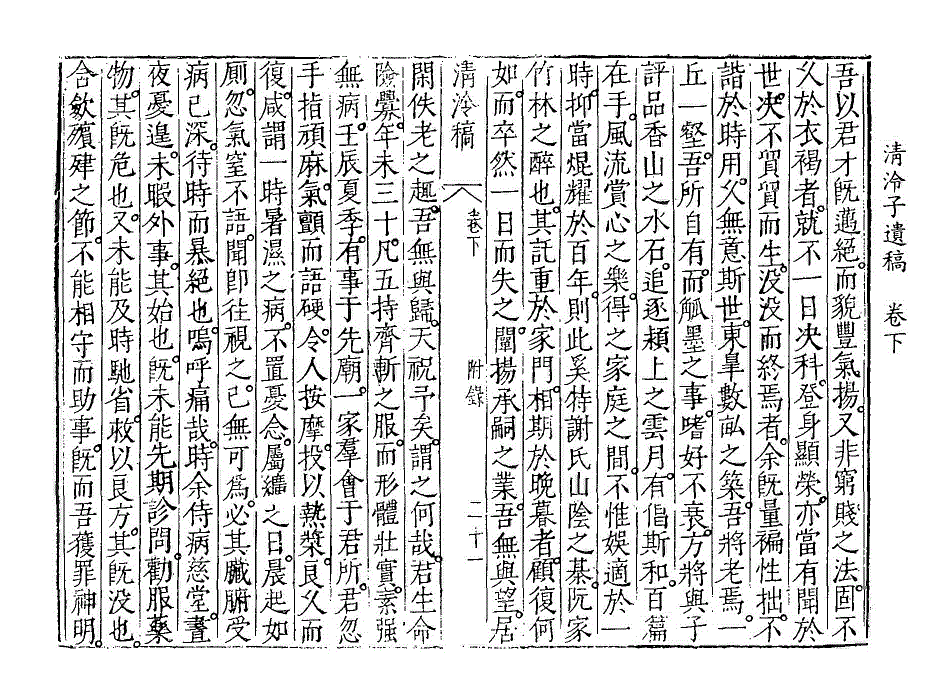 清泠子遺稿　卷下
吾以君才旣邁絕而貌豐氣揚又非窮賤之法固不
久於衣褐者就不一日决科登身顯榮亦當有聞於
世决不貿貿而生没没而終焉者余旣量褊性拙不
諧於時用久無意斯世東臯數畝之築吾將老焉一
丘一壑吾所自有而觚墨之事嗜好不衰方將與子
評品香山之水石追逐潁上之雲月有倡斯和百篇
在手風流賞心之樂得之家庭之間不惟娛適於一
時抑當焜耀於百年則此奚特謝氏山陰之棊阮家
竹林之醉也其託重於家門相期於晩暮者顧復何
如而卒然一日而失之闡揚承嗣之業吾無與望居
清泠稿　卷下　附錄　二十一
閑佚老之趣吾無與歸天祝予矣謂之何哉君生命
險釁年未三十凡五持齊斬之服而形體壯實素强
無病壬辰夏季有事于先廟一家羣會于君所君忽
手指頑麻氣顫而語硬令人按摩投以熱漿良久而
復咸謂一時暑濕之病不置憂念屬纊之日晨起如
厠忽氣窒不語聞卽往視之已無可爲必其臟腑受
病已深待時而暴絕也嗚呼痛哉時余侍病慈堂晝
夜憂遑未暇外事其始也旣未能先期診問勸服藥
物其旣危也又未能及時馳省救以良方其旣没也
含斂殯肂之節不能相守而助事旣而吾獲罪神明